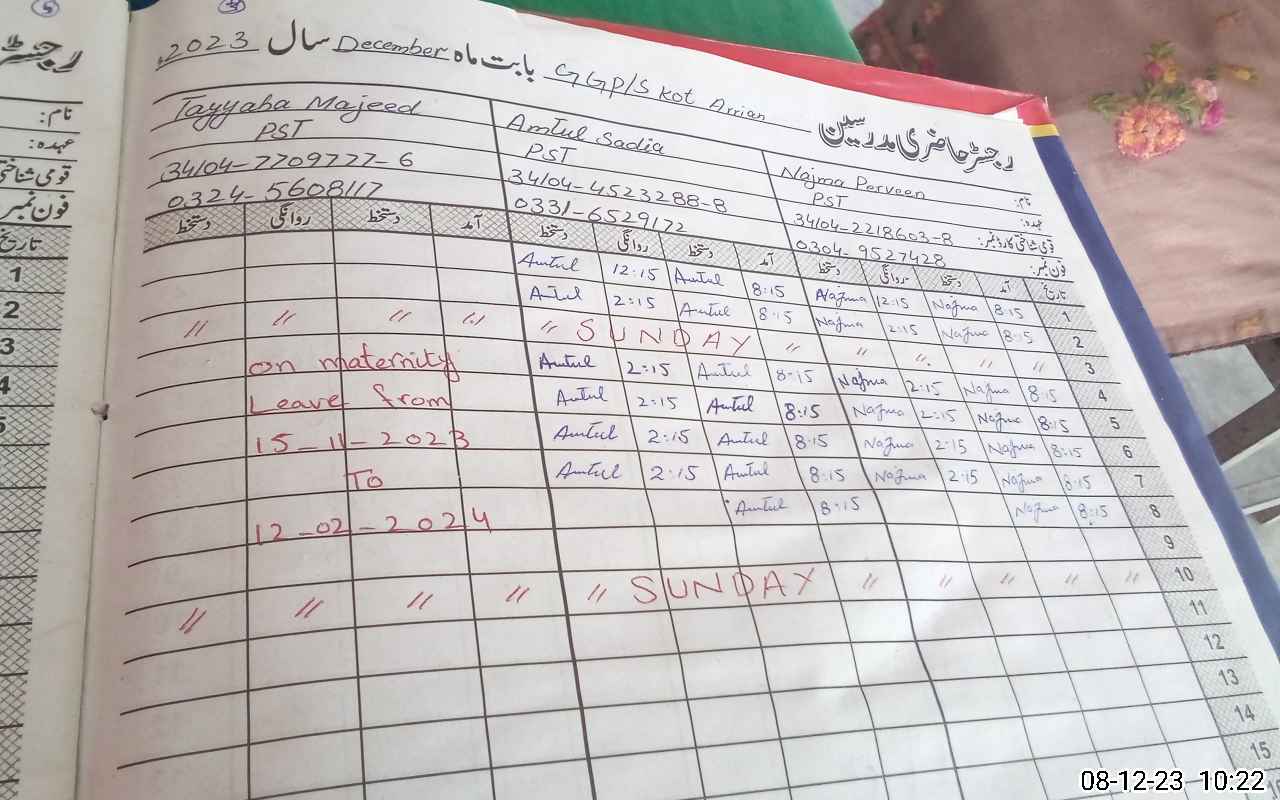 رجسٹر حاضری مدرسین GGP/S Kot Arrian بابت ماہ December سال 2023
نام: Najma Perveen Amtul Sadia Tayyaba Majeed
عہدہ: PST PST PST
قومی شناختی کارڈ نمبر: 34104-2218603-8 34104-4523288-8 34104-7709777-6
فون نمبر: 0304-9527428 0331-6529172 0324-5608117
تاریخ آمد دستخط روانگی دستخط آمد دستخط روانگی دستخط آمد دستخط روانگی دستخط
1 8:15 Najma 12:15 Najma 8:15 Amtul 12:15 Amtul
2 8:15 Najma 2:15 Najma 8:15 Amtul 2:15 Amtul
3 " " " " " SUNDAY " " " " "
4 8:15 Najma 2:15 Najma 8:15 Amtul 2:15 Amtul on maternity
5 8:15 Najma 2:15 Najma 8:15 Amtul 2:15 Amtul Leave from
6 8:15 Najma 2:15 Najma 8:15 Amtul 2:15 Amtul 15-11-2023
7 8:15 Najma 2:15 Najma 8:15 Amtul 2:15 Amtul To
8 8:15 Najma 8:15 Amtul 12-02-2024
9
10 " " " " " SUNDAY " " " " "
11
12
13
14
15
رجسٹر
نام:
عہدہ:
قومی شناختی
فون نمبر
تاریخ
1
2
3
4
5
08-12-23 10:22